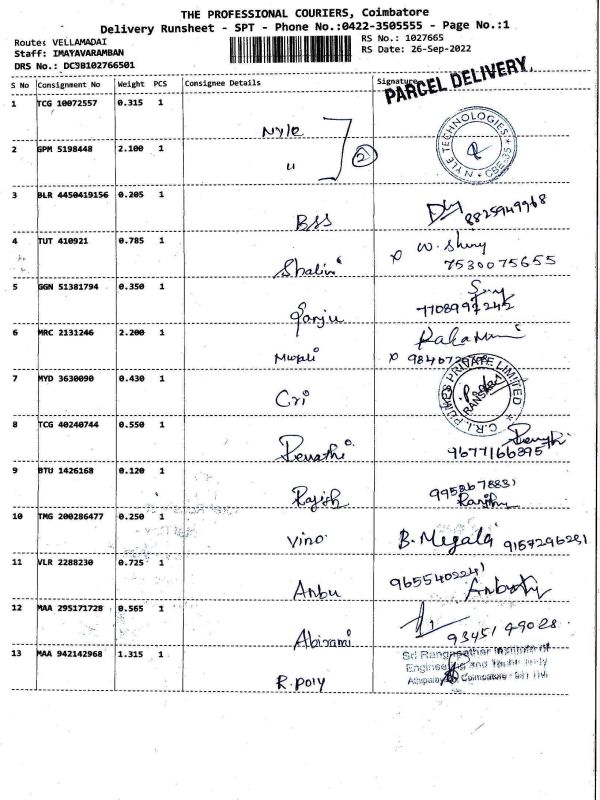 THE PROFESSIONAL COURIERS, Coimbatore
Delivery Runsheet - SPT - Phone No.:0422-3505555 - Page No.:1
Route: VELLAMADAI
RS No.: 1027665
Staff: IMAYAVARAMBAN
RS Date: 26-Sep-2022
DRS No.: DCSB102766501
PARCEL DELIVERY
S No Consignment No Weight PCS Consignee Details Signature
1 TCG 10072557 0.315 1 Nyle
NYLE TECHNOLOGIES CBE-35
2 GPM 5198448 2.100 1 " 2
3 BLR 4450419156 0.205 1 BSS 8825949968
4 TUT 410921 0.785 1 Shalini 7530075655
5 GGN 51381794 0.350 1 7708992242
6 MRC 2131246 2.200 1
7 MYD 3630090 0.430 1 Cri
C.R.I. PUMPS PRIVATE LIMITED
8 TCG 40240744 0.550 1 Revathi 9677166395
9 BTU 1426168 0.120 1 Rajish
10 TMG 200286477 0.250 1 Vino B. Megala 9157296231
11 VLR 2288230 0.725 1 Anbu 9655402241
12 MAA 295171728 0.565 1 Abirami 9345149028
13 MAA 942142968 1.315 1 R. poly
Sri Ranganathar Institute of
Engineering and Technology
Athipalayam, Coimbatore